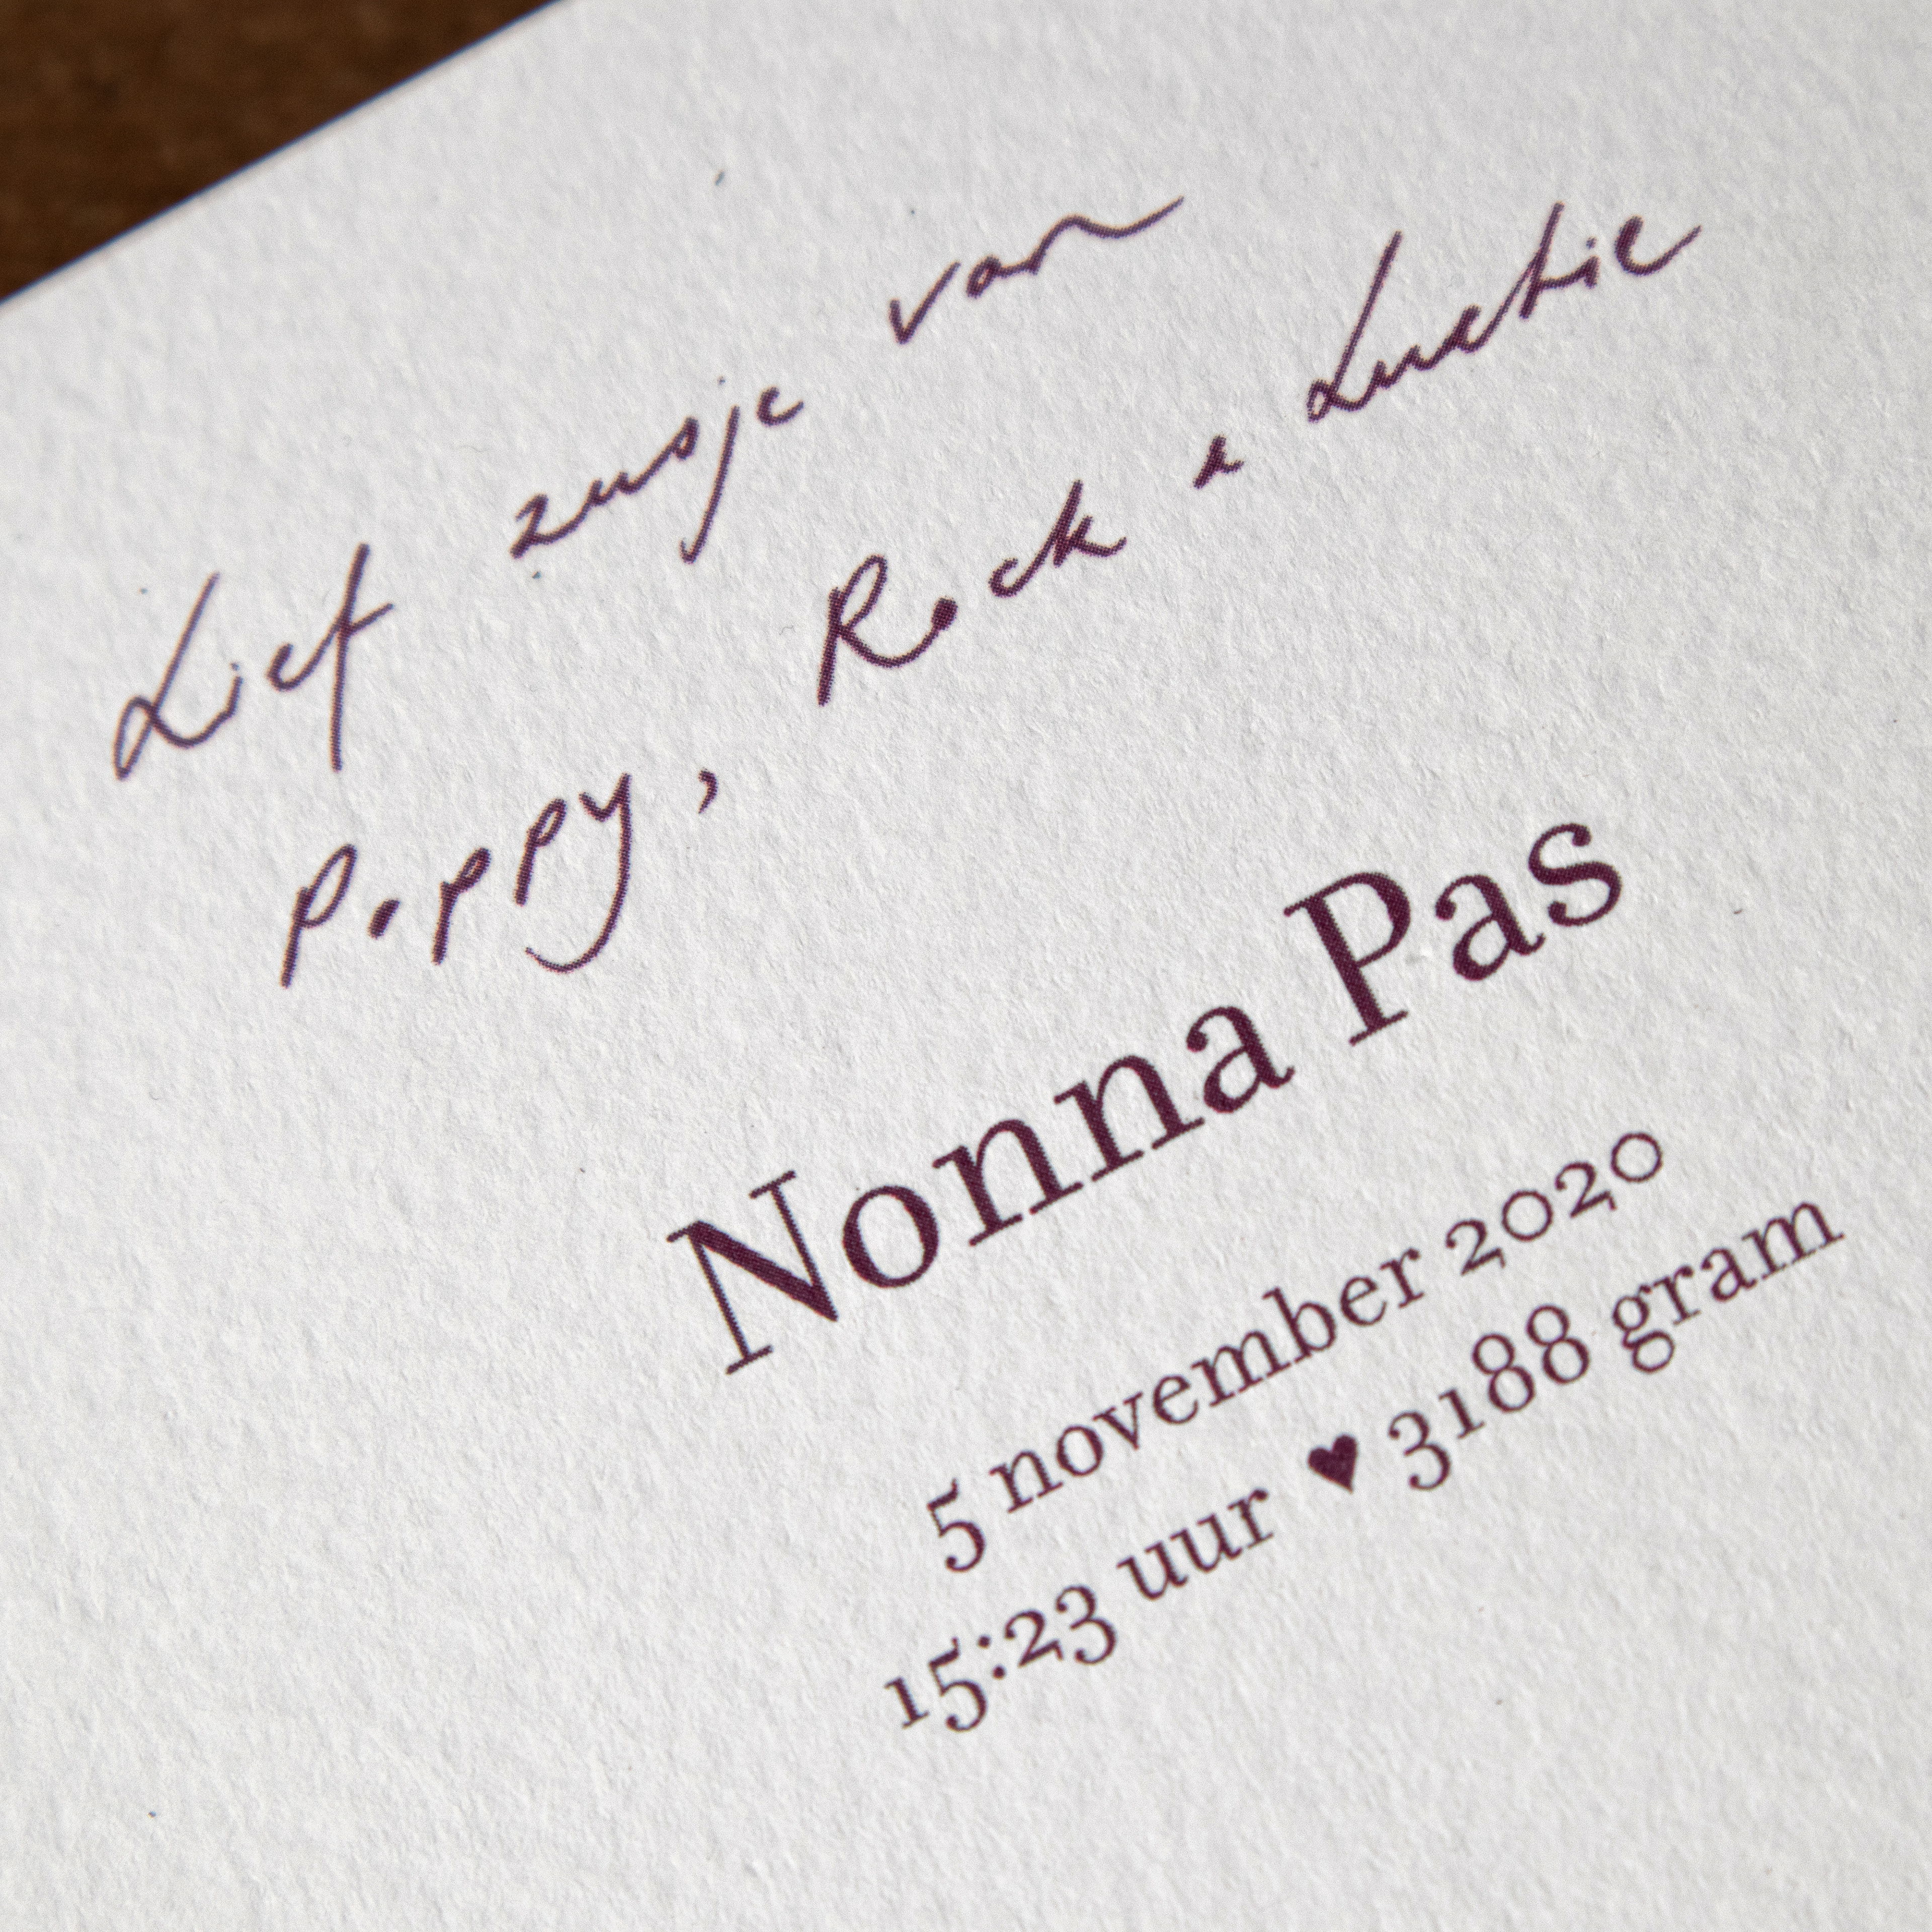 Lief zusje van
Poppy, Rock & Luctie
Nonna Pas
5 november 2020
15:23 uur ♥ 3188 gram